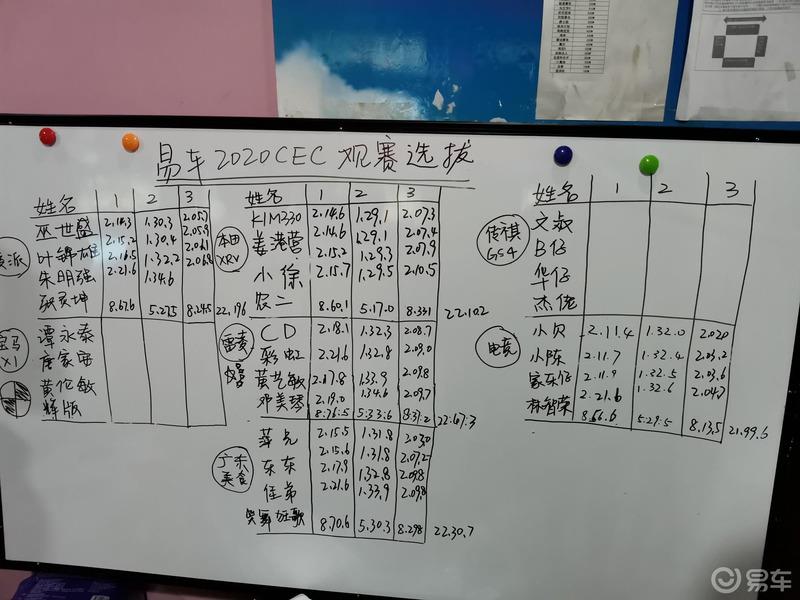 易车2020CEC观赛选拔
姓名 1 2 3
巫世盛 2.14.3 1.30.3 2.05.7
叶锦雄 2.15.2 1.30.4 2.05.9
朱明强 2.16.5 1.32.2 2.06.1
2.21.6 1.34.6 2.06.8
8.67.6 5.27.5 8.24.5 22.19.6
宝马X1
谭永泰
唐家
黄伦敏
辉版
姓名 1 2 3
本田XRV
KIM330 2.14.6 1.29.1 2.07.3
姜港营 2.14.6 1.29.1 2.07.4
小徐 2.15.2 1.29.3 2.07.9
农二 2.15.7 1.29.5 2.10.5
8.60.1 5.17.0 8.33.1 22.10.2
CD 2.18.1 1.32.3 2.08.7
彩虹 2.21.6 1.32.8 2.09.0
黄艺敏 2.17.8 1.33.9 2.09.8
邓美琴 2.19.0 1.34.6 2.09.7
8.76.5 5.33.6 8.37.2 22.67.3
广东美食
华兄 2.15.5 1.31.8 2.03.0
东东 2.15.6 1.31.8 2.07.2
佳弟 2.17.9 1.32.8 2.09.8
笑舞狂歌 2.21.6 1.33.9 2.09.8
8.70.6 5.30.3 8.29.8 22.30.7
姓名 1 2 3
传祺GS4
文叔
B仔
华仔
杰佬
电竞
小贝 2.11.4 1.32.0 2.020
小陈 2.11.7 1.32.4 2.03.2
家东仔 2.11.9 1.32.5 2.03.6
林智荣 2.21.6 1.32.6 2.04.7
8.66.6 5.29.5 8.13.5 21.99.6
易车